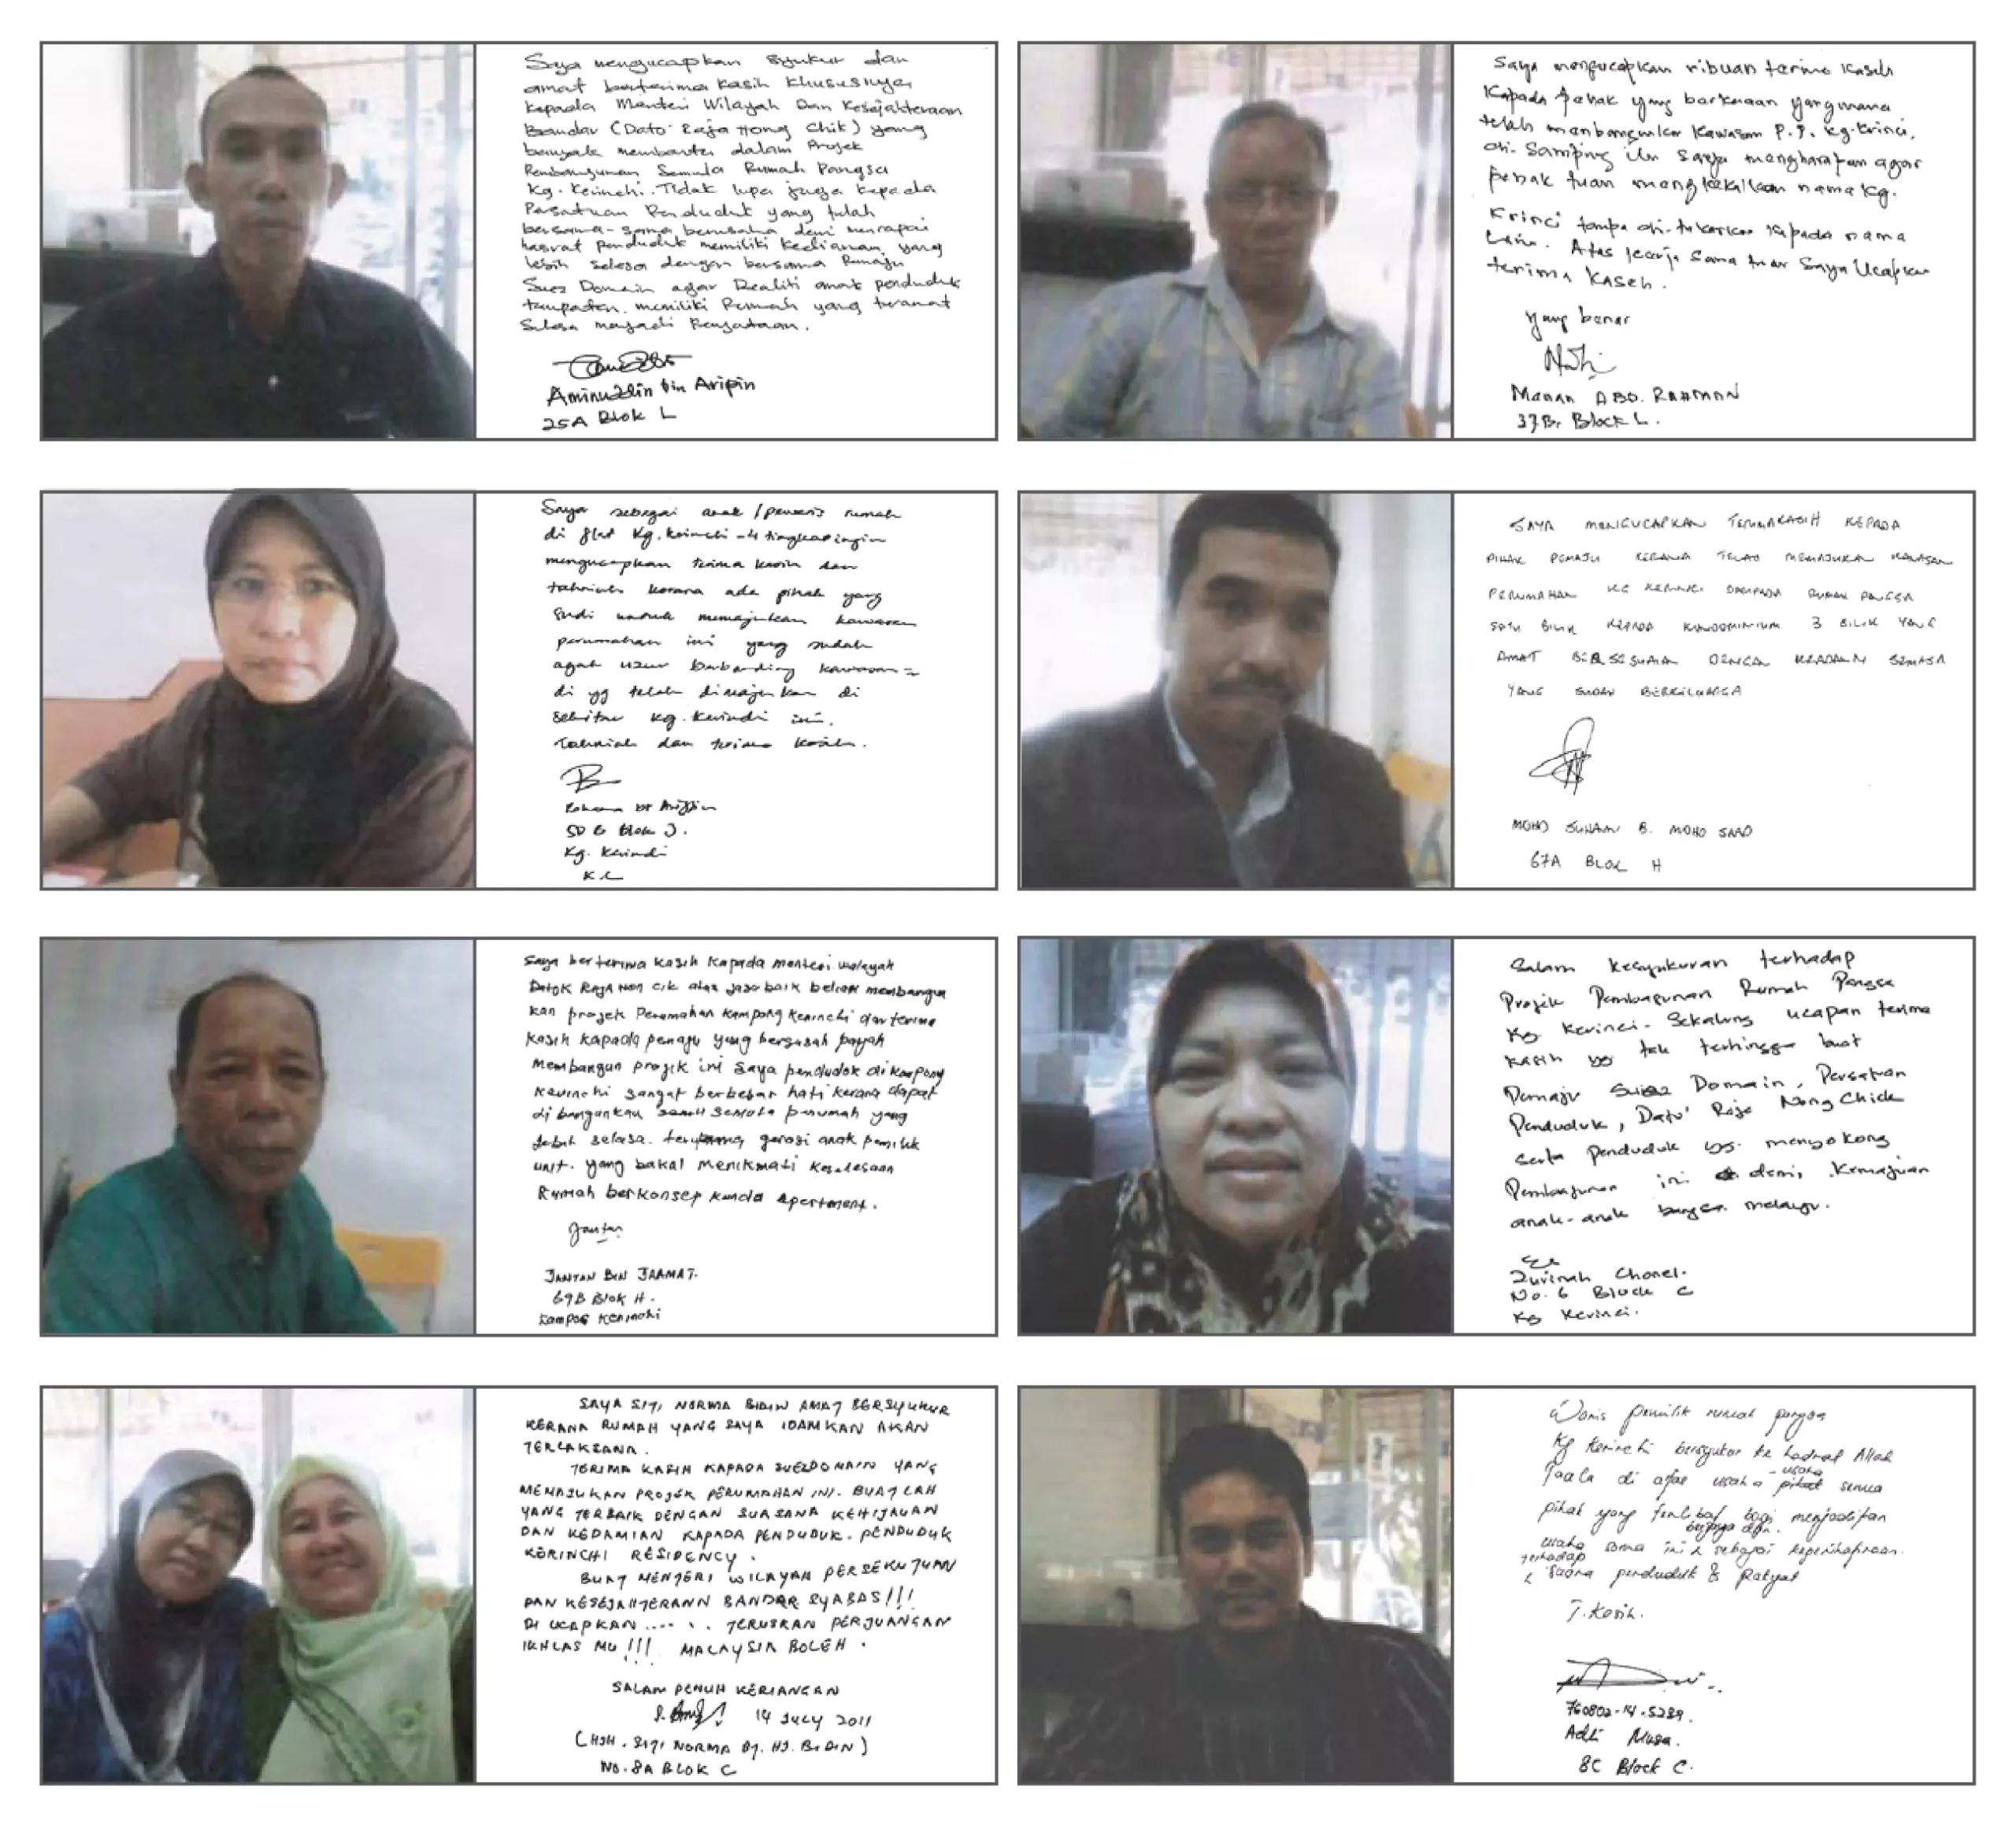 Saya mengucapkan syukur dan
amat berterima kasih khususnya
kepada Menteri Wilayah Dan Kesejahteraan
Bandar (Dato' Raja Hong Chik) yang
banyak membantu dalam Projek
Pembangunan Semula Rumah Pangsa
Kg. Kerinchi. Tidak lupa juga kepada
Persatuan Penduduk yang telah
bersama-sama berusaha demi mencapai
hasrat penduduk memiliki kediaman yang
lebih selesa dengan bersama Pemaju
Suez Domain agar Realiti anak penduduk
tempatan memiliki Rumah yang teramat
Selesa menjadi Kenyataan.
Aminuddin bin Aripin
25A Blok L
Saya mengucapkan ribuan terima Kaseh
Kapada pehak yang berkenaan yang mana
telah menbangunkan Kawasan P.P. Kg. Krinci,
di-samping itu saya mengharapan agar
pehak tuan mengkekalkan nama Kg.
Krinci tanpa di-tukarkan kapada nama
Lain. Atas kerja sama tuan Saya Ucapkan
terima Kaseh.
Yang benar
Manan ABD. RAHMAN
37B, Block L.
Saya sebagai anak / pewaris rumah
di flat Kg. Kerinchi -4 tingkat ingin
mengucapkan terima kasih dan
tahniah kerana ada pihak yang
sudi untuk memajukan kawasan
perumahan ini yang sudah
agak uzur berbanding kawasan=
di yg telah dimajukan di
sekitar Kg. Kerinchi ini.
Tahniah dan terima kasih.
Rohana bt Ariffin
Blok J.
Kg. Kerinchi
K.L
SAYA MENGUCAPKAN TERIMAKASIH KEPADA
PIHAK PEMAJU KERANA TELAH MEMAJUKAN KAWASAN
PERUMAHAN KG KERINCI DARIPADA RUMAH PANGSA
SATU BILIK KEPADA KONDOMINIUM 3 BILIK YANG
AMAT BERSESUAIAN DENGAN KEADAAN SEMASA
YANG SUDAH BERKELUARGA
MOHD SUHAIMI B. MOHD SAAD
67A BLOK H
Saya berterima Kasih Kapada menteri wilayah
DATOK RAJA NON CIK atas jasa baik beliau membangun
kan projek Perumahan Kampong Kerinchi dan terima
Kasih Kapada pemaju yang bersusah payah
membangun projek ini Saya penduduk di kampong
Kerinchi sangat berbesar hati kerana dapat
di bangunkan semula perumah yang
lebih selasa. gerasi anak pemilik
unit. yang bakal menikmati Keselesaan
Rumah berkonsep Kondo Apertment.
Jantan
JANTAN BIN JAAMAT.
69B Blok H.
Kampos Kerinchi
Salam kesyukuran terhadap
Projek Pembagunan Rumah Pangsa
Kg Kerinci. Sekalung ucapan terima
Kasih yg tak terhingga buat
Pemaju Suez Domain, Persatuan
Penduduk, Datu' Raja Nong Chick
serta penduduk yg. menyokong
Pembagunan ini demi Kemajuan
anak-anak bangsa melayu.
Zurinah Chonel.
No. 6 Block C
Kg Kerinci.
SAYA SITI NORMA BIDIN AMAT BERSYUKUR
KERANA RUMAH YANG SAYA IDAMKAN AKAN
TERLAKSANA.
TERIMA KASIH KAPADA SUEZDOMAIN YANG
MEMAJUKAN PROJEK PERUMAHAN INI. BUATLAH
YANG TERBAIK DENGAN SUASANA KEHIJAUAN
DAN KEDAMIAN KAPADA PENDUDUK. PENDUDUK
KERINCHI RESIDENCY.
BUAT MENTERI WILAYAH PERSEKUTUAN
DAN KESEJAHTERANN BANDAR SYABAS!!!
DI UCAPKAN ..... TERUSKAN PERJUANGAN
IKHLAS MU !!! MALAYSIA BOLEH.
SALAM PENUH KERIANGAN
14 JULY 2011
(HJH. SITI NORMA BT. HJ. BIDIN)
NO. 8A BLOK C
Waris pemilik rumah pangsa
Kg Kerinchi bersyukur ke hadrat Allah
Taala di atas usaha-usaha pihak semua
pihak yang terlibat bagi menjadikan
usaha sama ini berjaya dan sebagai keperihatinan
terhadap suara penduduk & rakyat
T. Kasih.
760802-14-5239.
Adli Musa.
8C Block C.